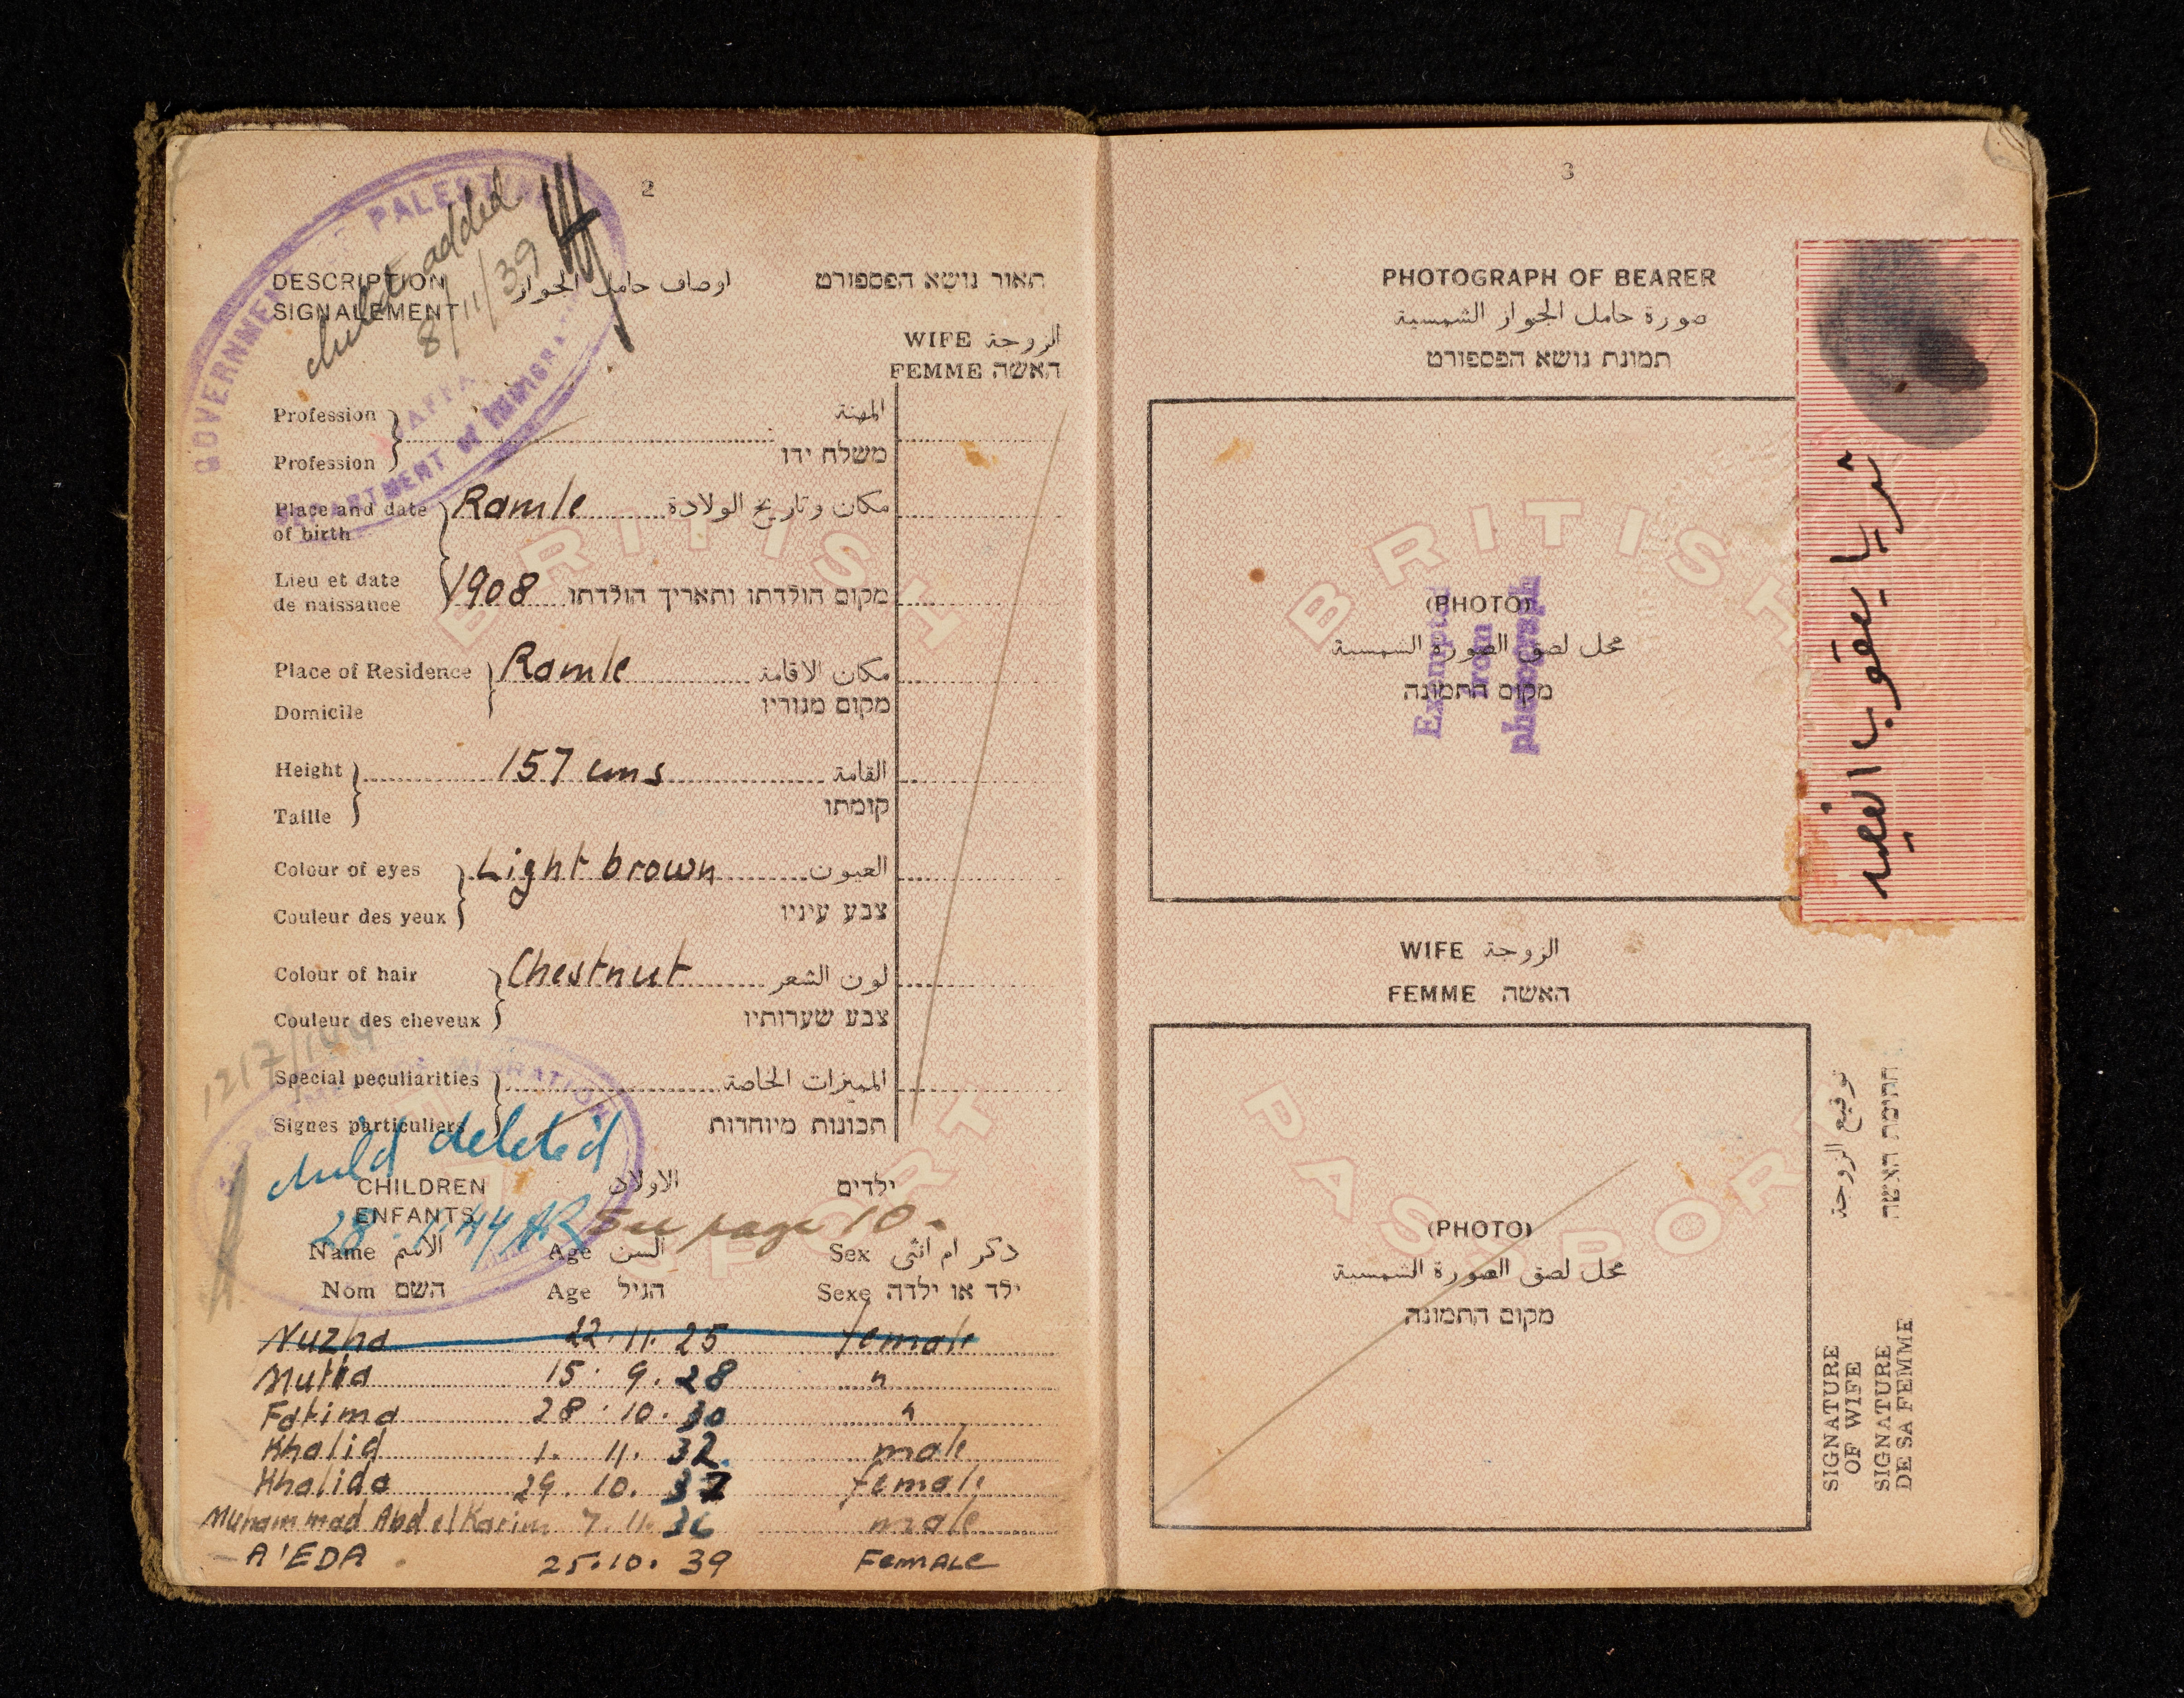 2
GOVERNMENT OF PALESTINE
JAFFA
DEPARTMENT of IMMIGRATION
child added
8/11/39
DESCRIPTION اوصاف حامل الجواز תאור נושא הפספורט
SIGNALEMENT
WIFE الزوجة
FEMME האשה
Profession المهنة
Profession משלח ידו
Place and date of birth Ramle مكان وتاريخ الولادة
Lieu et date de naissance 1908 מקום הולדתו ותאריך הולדתו
Place of Residence Ramle مكان الاقامة
Domicile מקום מגוריו
Height 157 cms القامة
Taille קומתו
Colour of eyes Light brown العيون
Couleur des yeux צבע עיניו
Colour of hair Chestnut لون الشعر
Couleur des cheveux צבע שערותיו
1217/144
Special peculiarities المميزات الخاصة
Signes particuliers תכונות מיוחדות
child deleted
CHILDREN الاولاد ילדים
ENFANTS
See page 10.
Name الاسم Age السن Sex ذكر ام انثى
Nom השם Age הגיל Sexe ילד או ילדה
Nuzha 22.11.25 female
15.9.28 "
Fatima 28.10.30 "
Khalid 1.11.32 male
Khalida 29.10. female
Muhammad Abd el Karim 7.11.36 male
A'EDA 25.10.39 FemALe
BRITISH
PASSPORT
3
PHOTOGRAPH OF BEARER
صورة حامل الجواز الشمسية
תמונת נושא הפספורט
(PHOTO)
محل لصق الصورة الشمسية
מקום התמונה
Exempted
from
photograph
ثريا يعقوب
BRITISH
WIFE الزوجة
FEMME האשה
(PHOTO)
محل لصق الصورة الشمسية
מקום התמונה
PASSPORT
توقيع الزوجة
חתימת האשה
SIGNATURE
OF WIFE
SIGNATURE
DE SA FEMME